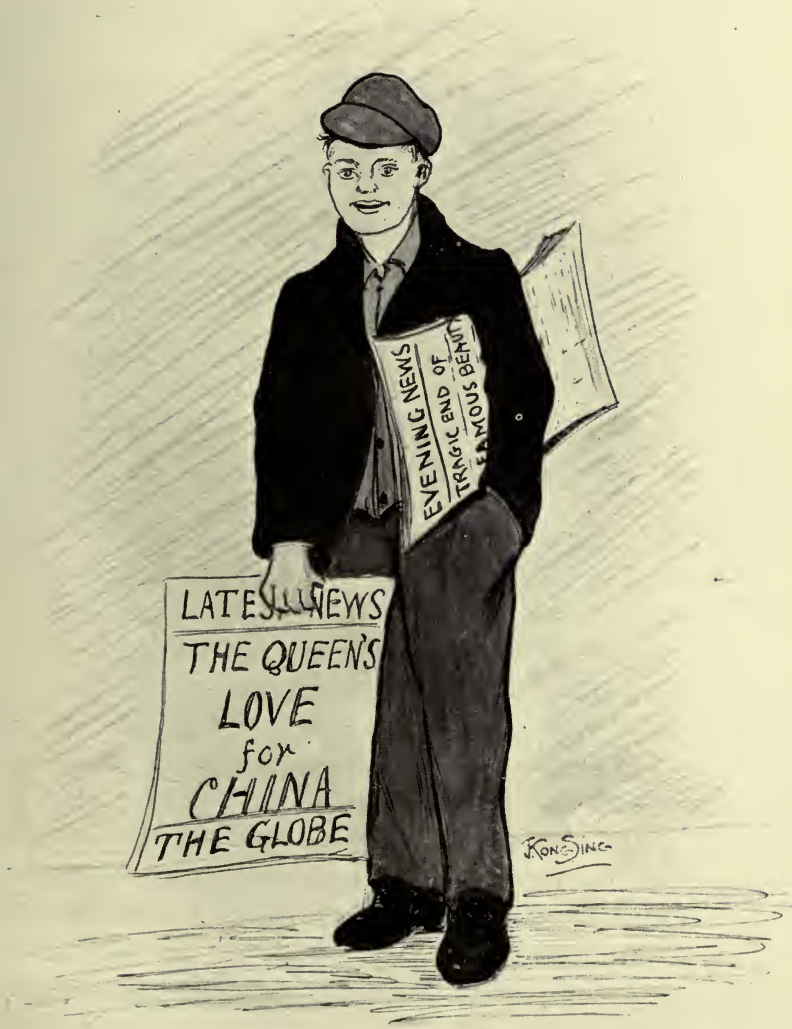 EVENING NEWS
TRAGIC END OF
FAMOUS BEAUTY
LATEST NEWS
THE QUEEN'S
LOVE
for
CHINA
THE GLOBE
J. KONG SING